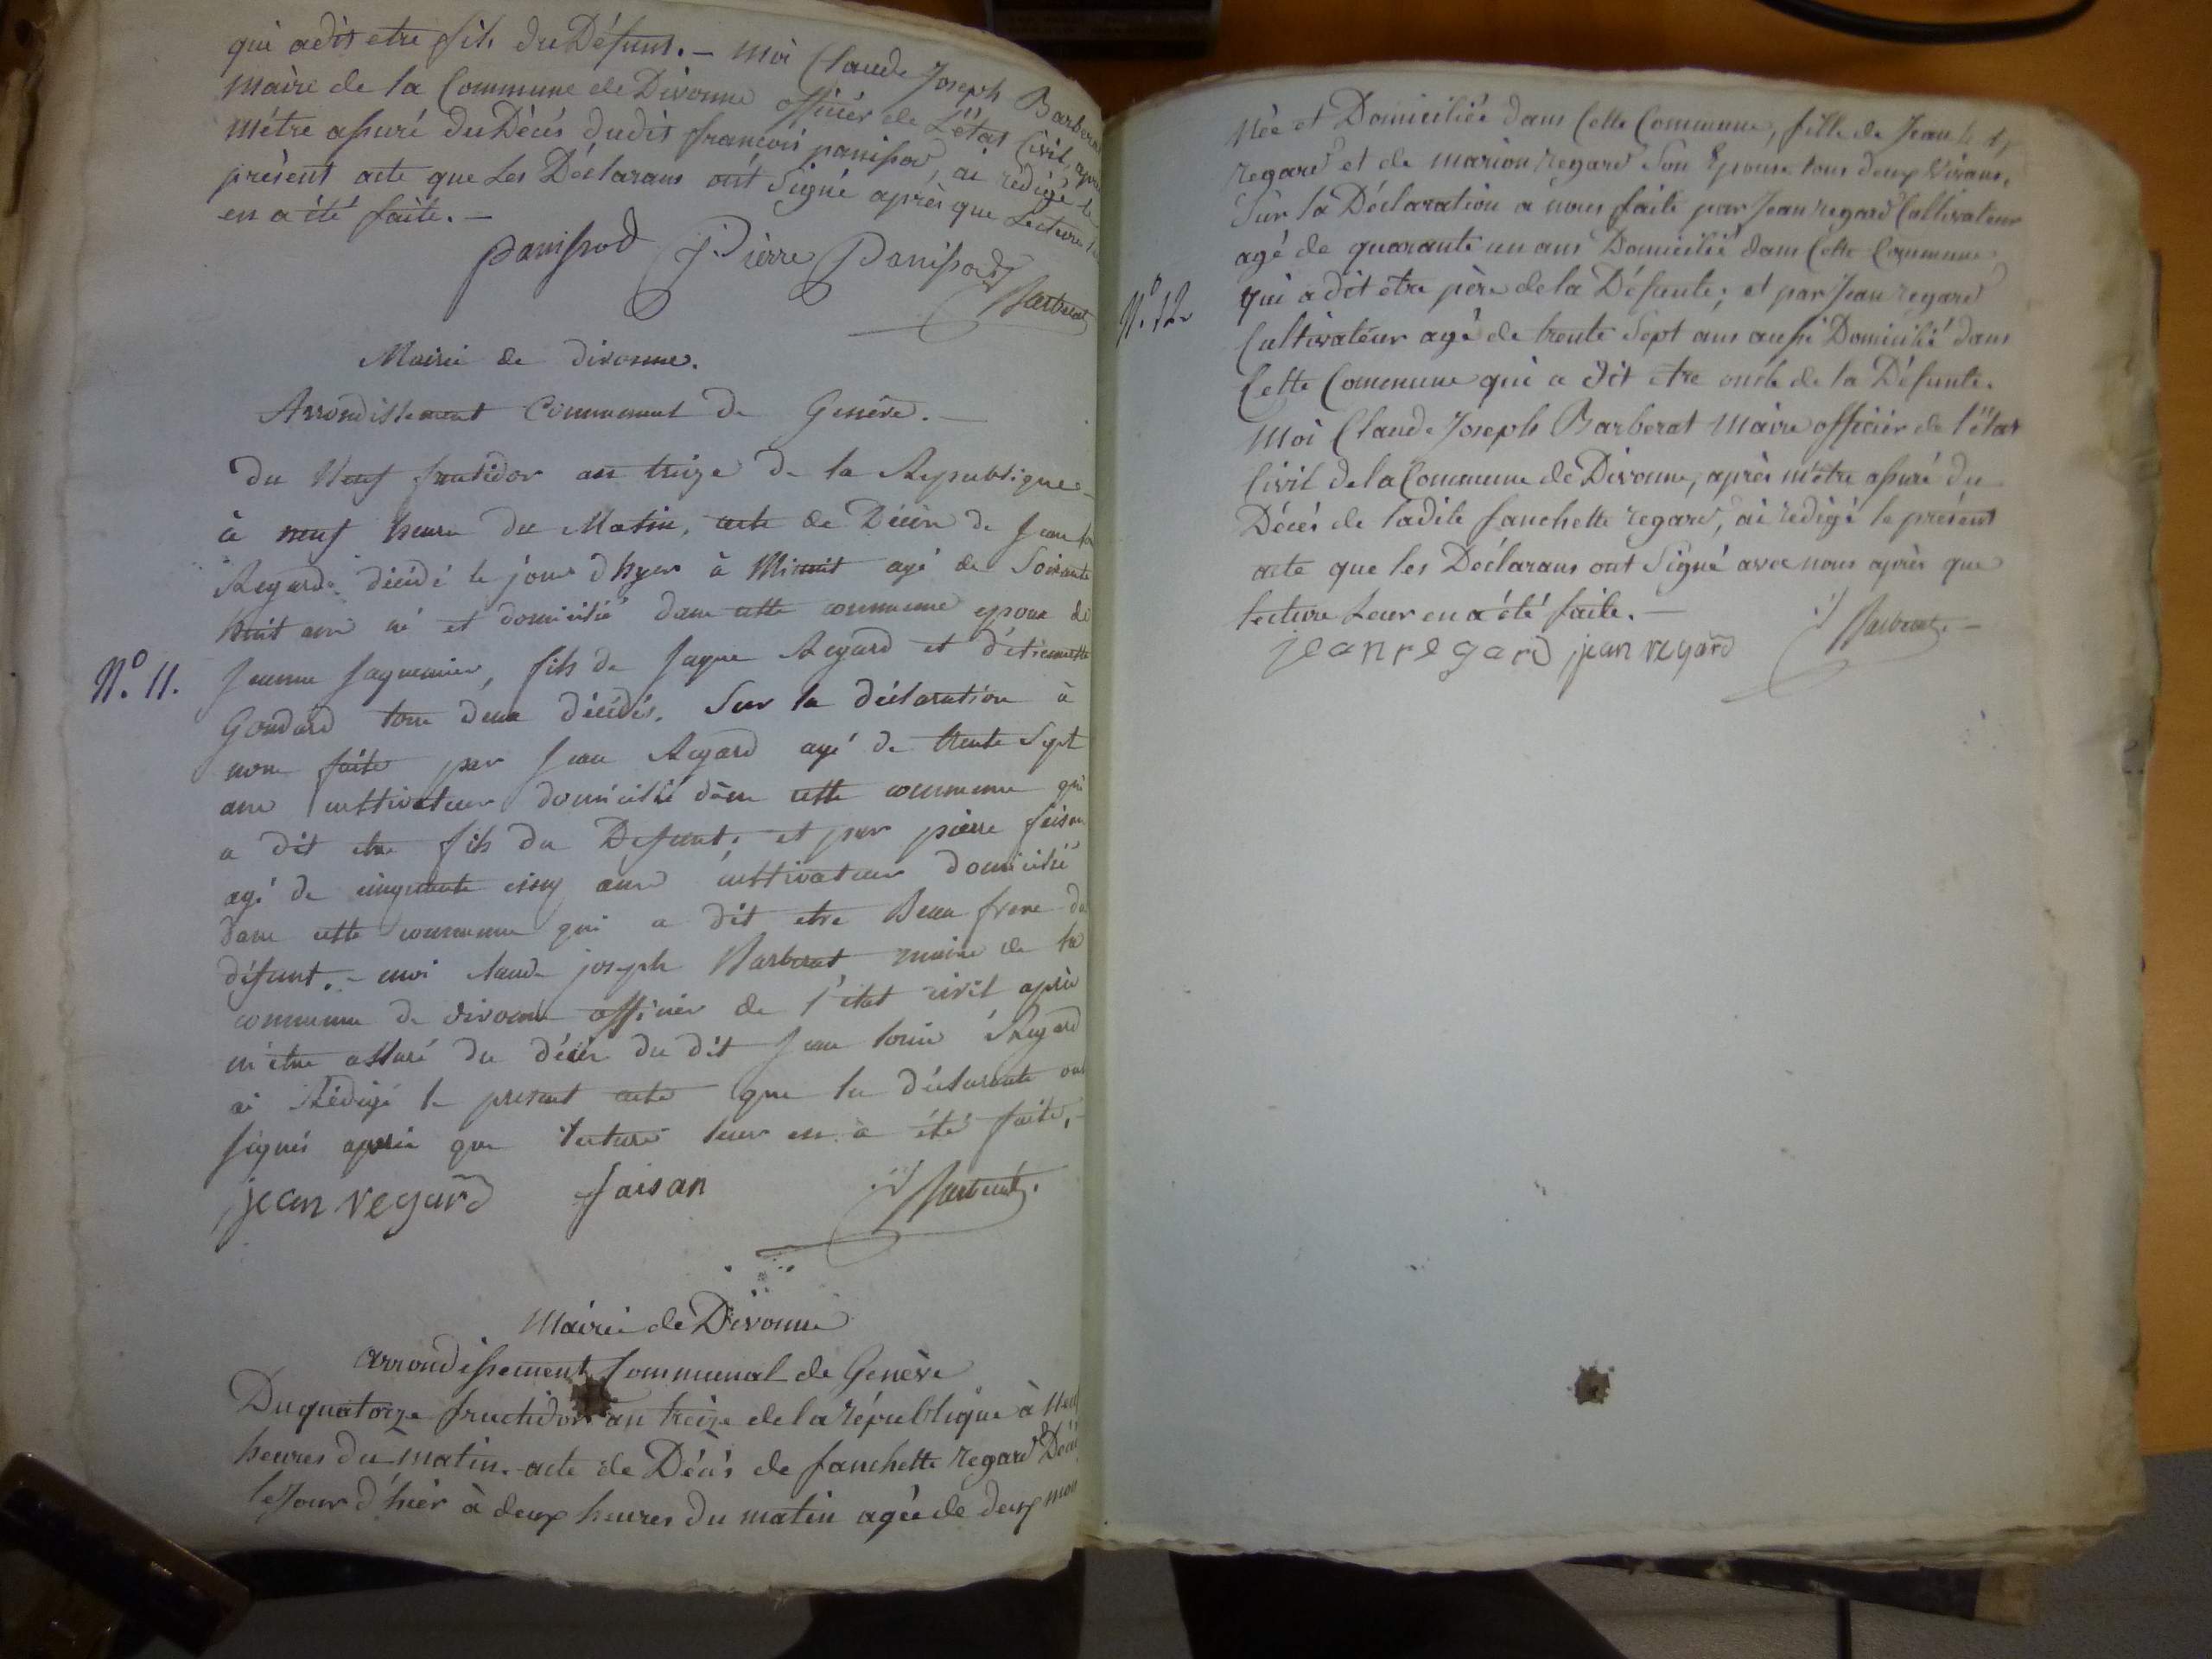 qui a dit etre fils du Défunt. – Moi Claude Joseph Barberat
Maire de la Commune de Divonne officier de L'état Civil, après
m'être assuré du Décés dudit françois panissod, ai rédigé le
présent acte que Les Déclarans ont Signé après que Lecture
en a été faite. –
panissod Pierre Panissod Barberat
Mairie de divonne.
Arrondissement Communal de Genève. –
du Neuf fructidor an treize de la Republique
à neuf heure du Matin, acte de Décès de Jean
Regard décédé le jour d'hyer à Minuit agé de Soixante
huit ans né et domicilié dans cette commune epoux de
N.º 11. Jeanne Jaquemier, fils de Jaque Regard et d'étiennette
Gondard tous deux décédés. Sur la déclaration à
nous faite par Jean Regard agé de trente Sept
ans cultivateur domicilié dans cette commune qui
a dit etre fils du Defunt; et par pierre faisan
agé de cinquante cinq ans cultivateur domicilié
dans cette commune qui a dit etre Beau frere du
défunt. – moi claude joseph Barberat maire de la
commune de divonne officier de l'état civil après
m'être assuré du décès du dit Jean louis Regard
ai Rédigé le present acte que les déclarants ont
signés après que lecture leur en a été faite. –
jean regard faisan Barberat.
Mairie de Divonne
arrondissement Communal de Genève
Du quatorze fructidor an treize de la république à Neuf
heures du matin. acte de Décès de fanchette regard Décé
le Jour d'hier à deux heures du matin agée de deux mois
Née et Domiciliée dans Cette Commune, fille de Jean
regard et de marion regard Son Epouse tous deux Vivans,
Sur la Déclaration a nous faite par Jean regard Cultivateur
agé de quarante un ans Domicilié dans Cette Commune
N.º 12. qui a dit être père de la Défunte; et par Jean regard
Cultivateur agé de trente Sept ans aussi Domicilié dans
Cette Commune qui a dit etre oncle de la Défunte.
Moi Claude Joseph Barberat Maire officier de l'état
Civil de la Commune de Divonne, après m'être assuré du
Décés de ladite fanchette regard, ai rédigé le présent
acte que les Déclarans ont Signé avec nous après que
lecture Leur en a été faite. –
jean regard jean regard Barberat. –